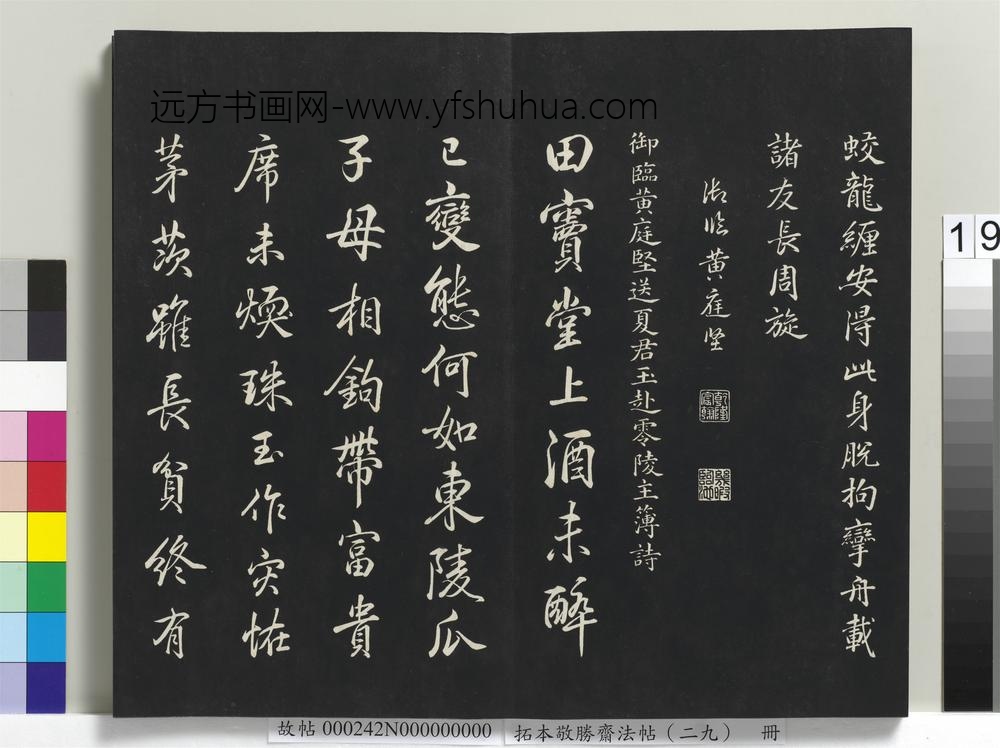 远方书画网-www.yfshuhua.com
蛟龍纏安得此身脫拘攣舟載
諸友長周旋
御临黄庭坚
乾隆宸翰
幾暇臨池
御臨黄庭堅送夏君玉赴零陵主簿詩
田竇堂上酒未醉
已變態何如東陵瓜
子母相鉤帶富貴
席未煖珠玉作災怪
茅茨雖長貧終有
19
故帖 000242N000000000
拓本敬勝齋法帖（二九） 冊